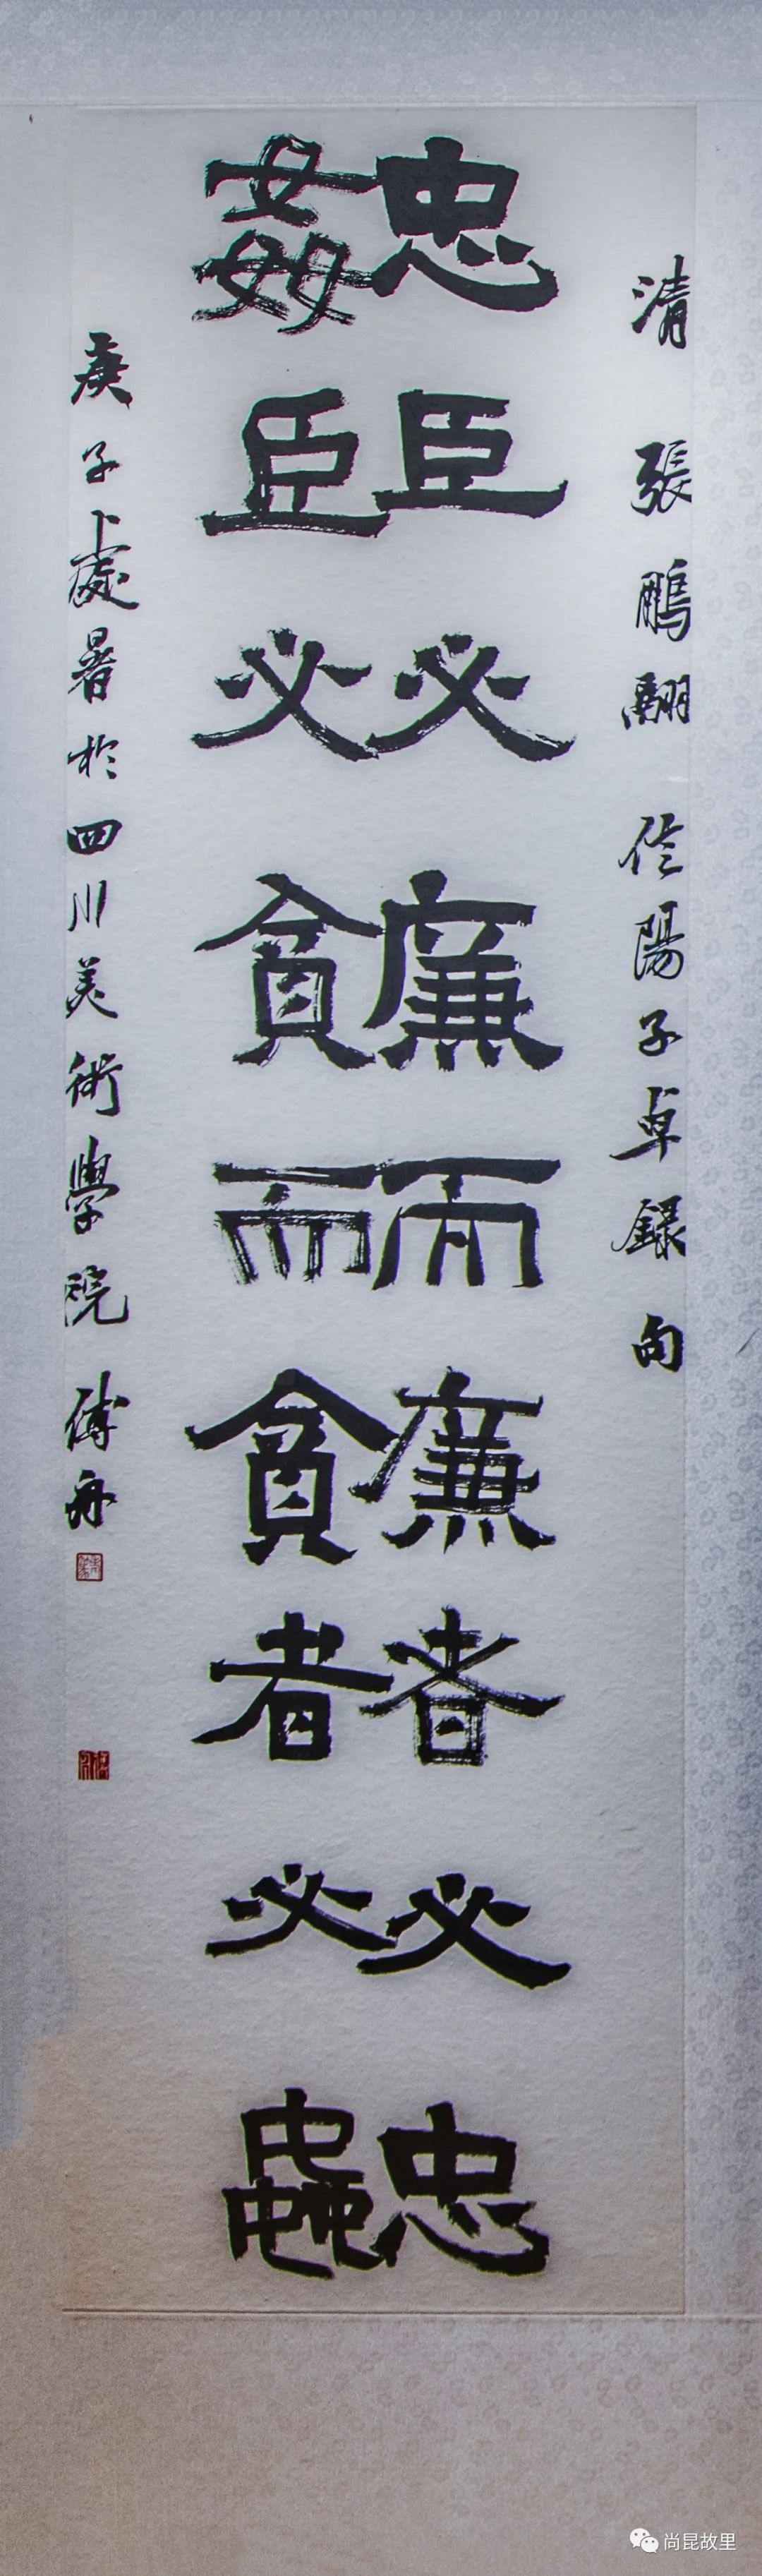 清 張鵬翮 信陽子卓録句
忠臣必廉而廉者必忠
姦臣必貪而貪者必蟲
庚子處暑於四川美術學院 傅舟
尚昆故里